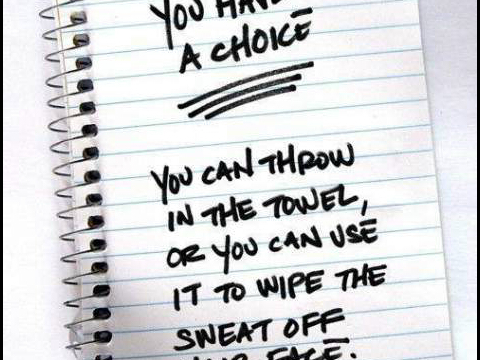 YOU HAVE
A CHOICE
YOU CAN THROW
IN THE TOWEL,
OR YOU CAN USE
IT TO WIPE THE
SWEAT OFF
YOUR FACE.